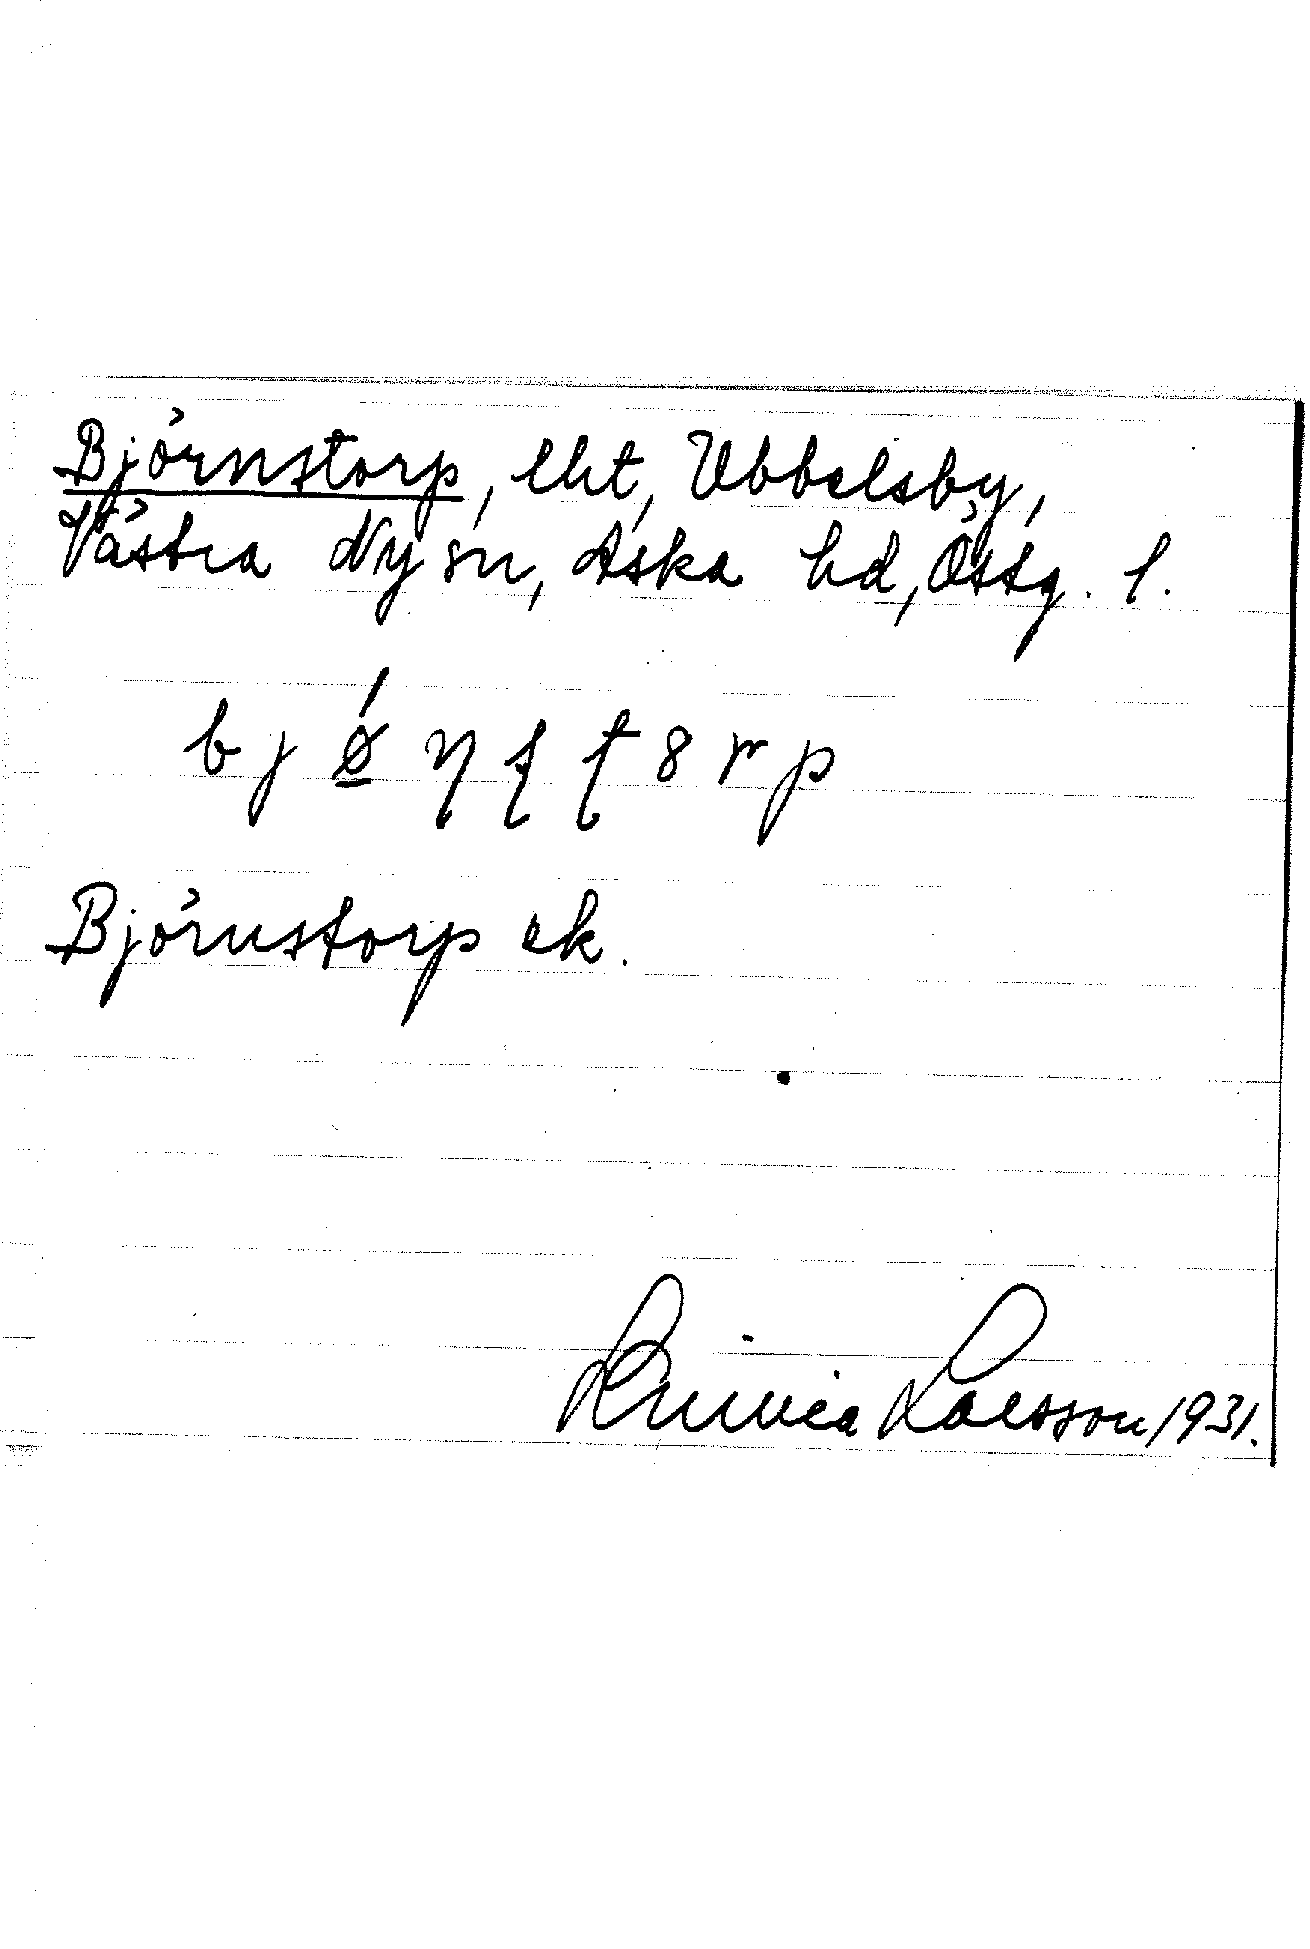 Björnstorp, lht, Ubbelsby,
Västra Ny sn, Aska hd, Östg. l.
Björnstorp ek.
Linnea Larsson 1931.